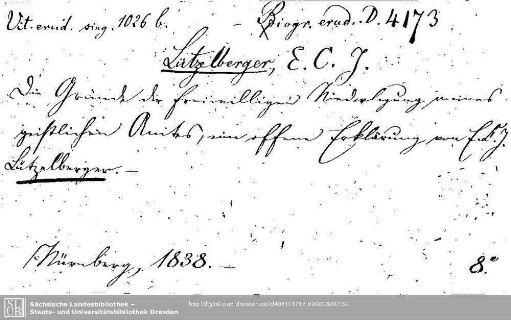 Vit. erud. sing. 1026 b. — Biogr. erud. D. 4173
Lützelberger, E. C. J.
Die Gründe der freiwilligen Niederlegung meines
geistlichen Amtes, eine offene Erklärung von E. C. J.
Lützelberger. —
Nürnberg, 1838. — 8.°
SLUB
Sächsische Landesbibliothek –
Staats- und Universitätsbibliothek Dresden